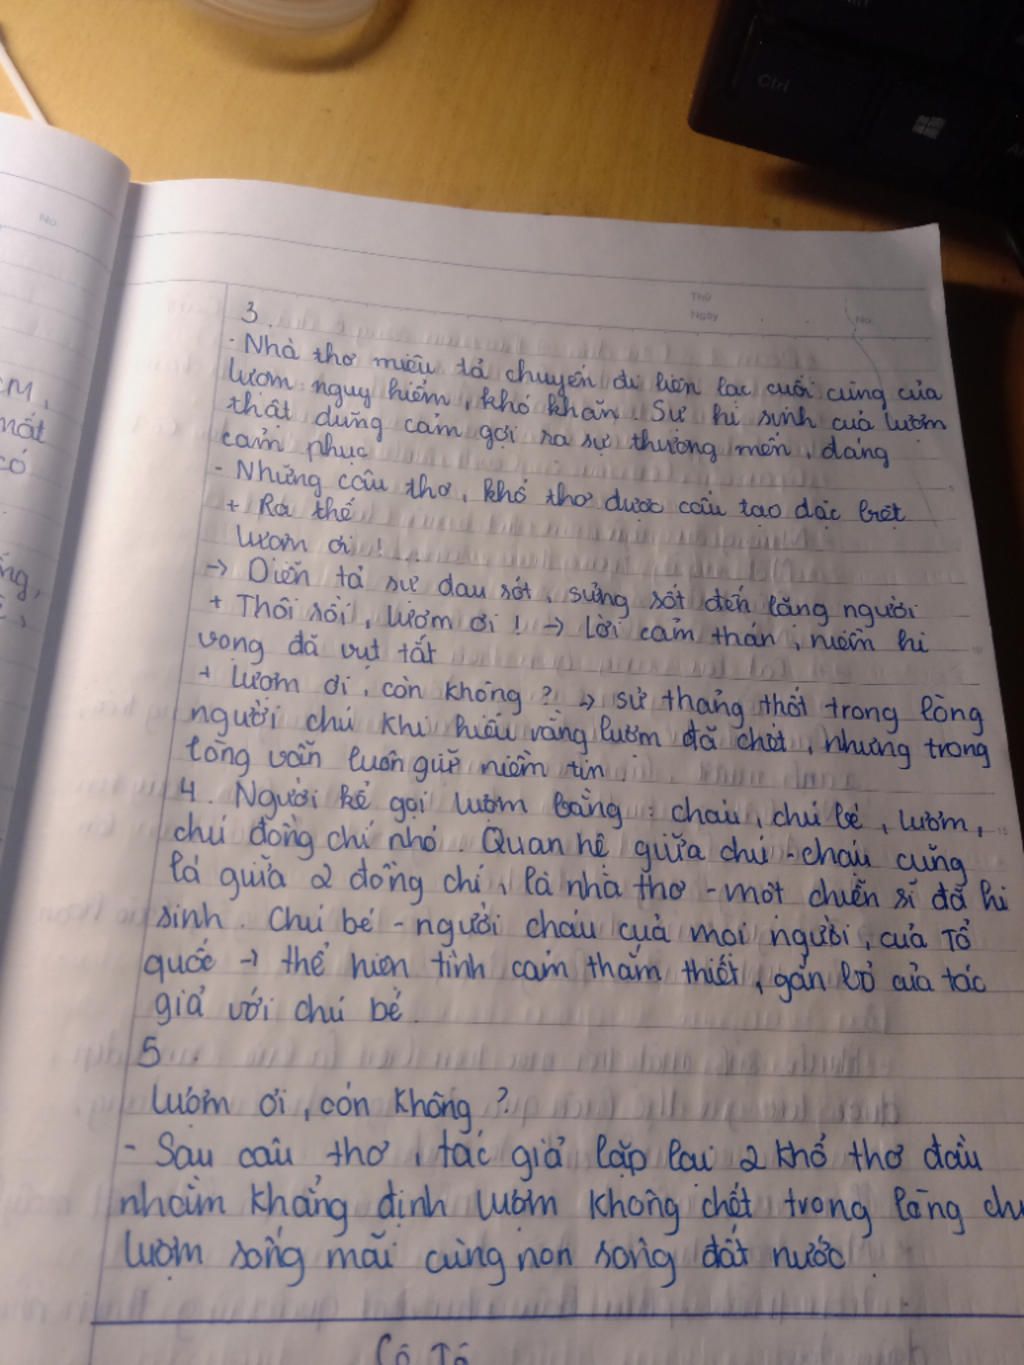 Thứ
Ngày
No
No
Ctrl
3.
- Nhà thơ miêu tả chuyến đi liên lạc cuối cùng của
lượm nguy hiểm, khó khăn. Sự hi sinh của lượm
thật dũng cảm gợi ra sự thương mến, đáng
cảm phục
- Những câu thơ, khổ thơ được cấu tạo đặc biệt
+ Ra thế
lượm ơi !...
→ Diễn tả sự đau sót, sửng sốt đến lặng người
+ Thôi rồi, lượm ơi ! → lời cảm thán, niềm hi
vọng đã vụt tắt
+ lượm ơi, còn không ? → sự thảng thốt trong lòng
người chú khi hiểu rằng lượm đã chết, nhưng trong
lòng vẫn luôn giữ niềm tin.
4. Người kể gọi lượm bằng : cháu, chú bé, lượm,
chú đồng chí nhỏ. Quan hệ giữa chú - cháu cũng
là giữa 2 đồng chí, là nhà thơ - một chiến sĩ đã hi
sinh. Chú bé - người cháu của mọi người, của Tổ
quốc → thể hiện tình cảm thắm thiết, gắn bó của tác
giả với chú bé.
5.
lượm ơi, còn không ?
- Sau câu thơ, tác giả lặp lại 2 khổ thơ đầu
nhằm khẳng định lượm không chết trong lòng
lượm sống mãi cùng non sông đất nước.
Cô Tô